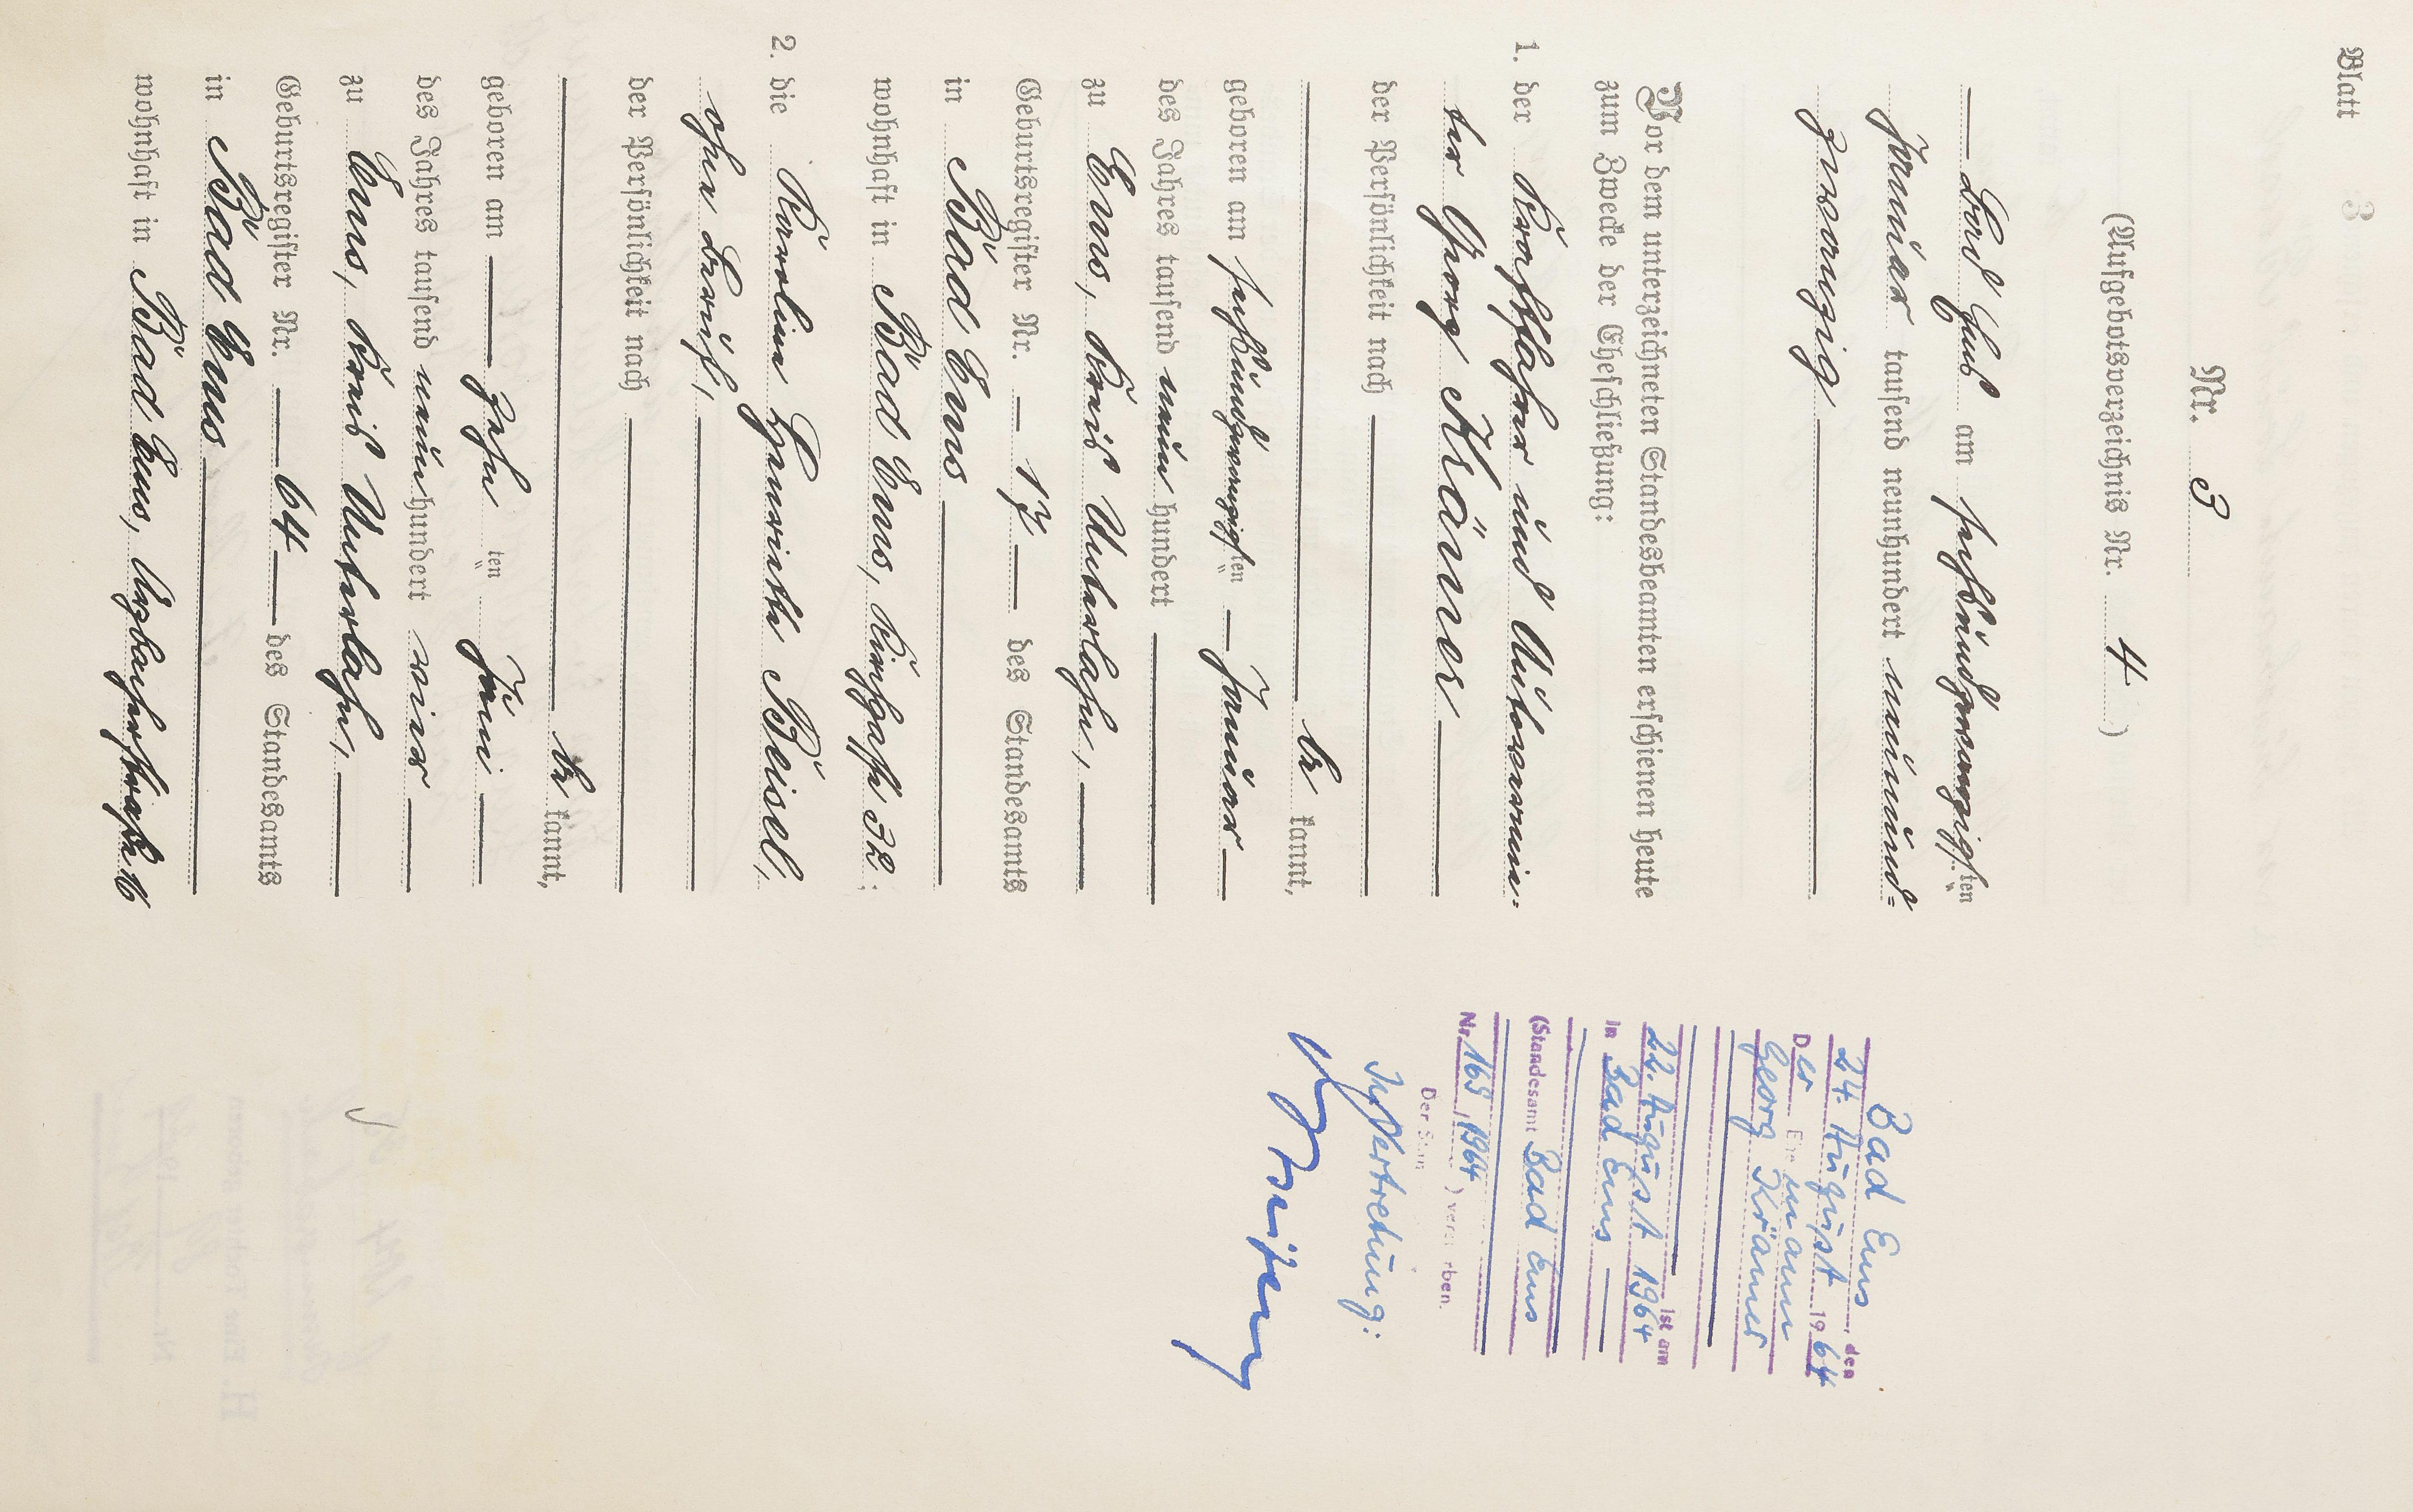 Blatt 3
Nr. 3
(Aufgebotsverzeichnis Nr. 4)
Bad Ems am sechsundzwanzigsten
Januar tausend neunhundert neunund=
zwanzig
Vor dem unterzeichneten Standesbeamten erschienen heute
zum Zwecke der Eheschließung:
1. der Kraftfahrer und Autovermie=
ter Georg Kräner
der Persönlichkeit nach
be kannt,
geboren am sechsundzwanzigsten Januar
des Jahres tausend neun hundert
zu Ems, Kreis Unterlahn,
Geburtsregister Nr. 17 des Standesamts
in Bad Ems
wohnhaft in Bad Ems, Kirchgasse 32;
2. die Karoline Henriette Beisel,
ohne Beruf,
der Persönlichkeit nach
be kannt,
geboren am zehn ten Juni
des Jahres tausend neun hundert vier
zu Ems, Kreis Unterlahn,
Geburtsregister Nr. 64 des Standesamts
in Bad Ems
wohnhaft in Bad Ems, Arzbacherstraße 16
Bad Ems, den
24. August 1964
Der Ehemann
Georg Kräner
ist am
22. August 1964
in Bad Ems
(Standesamt Bad Ems
Nr. 163/1964) verstorben.
Der Stan
In Vertretung: